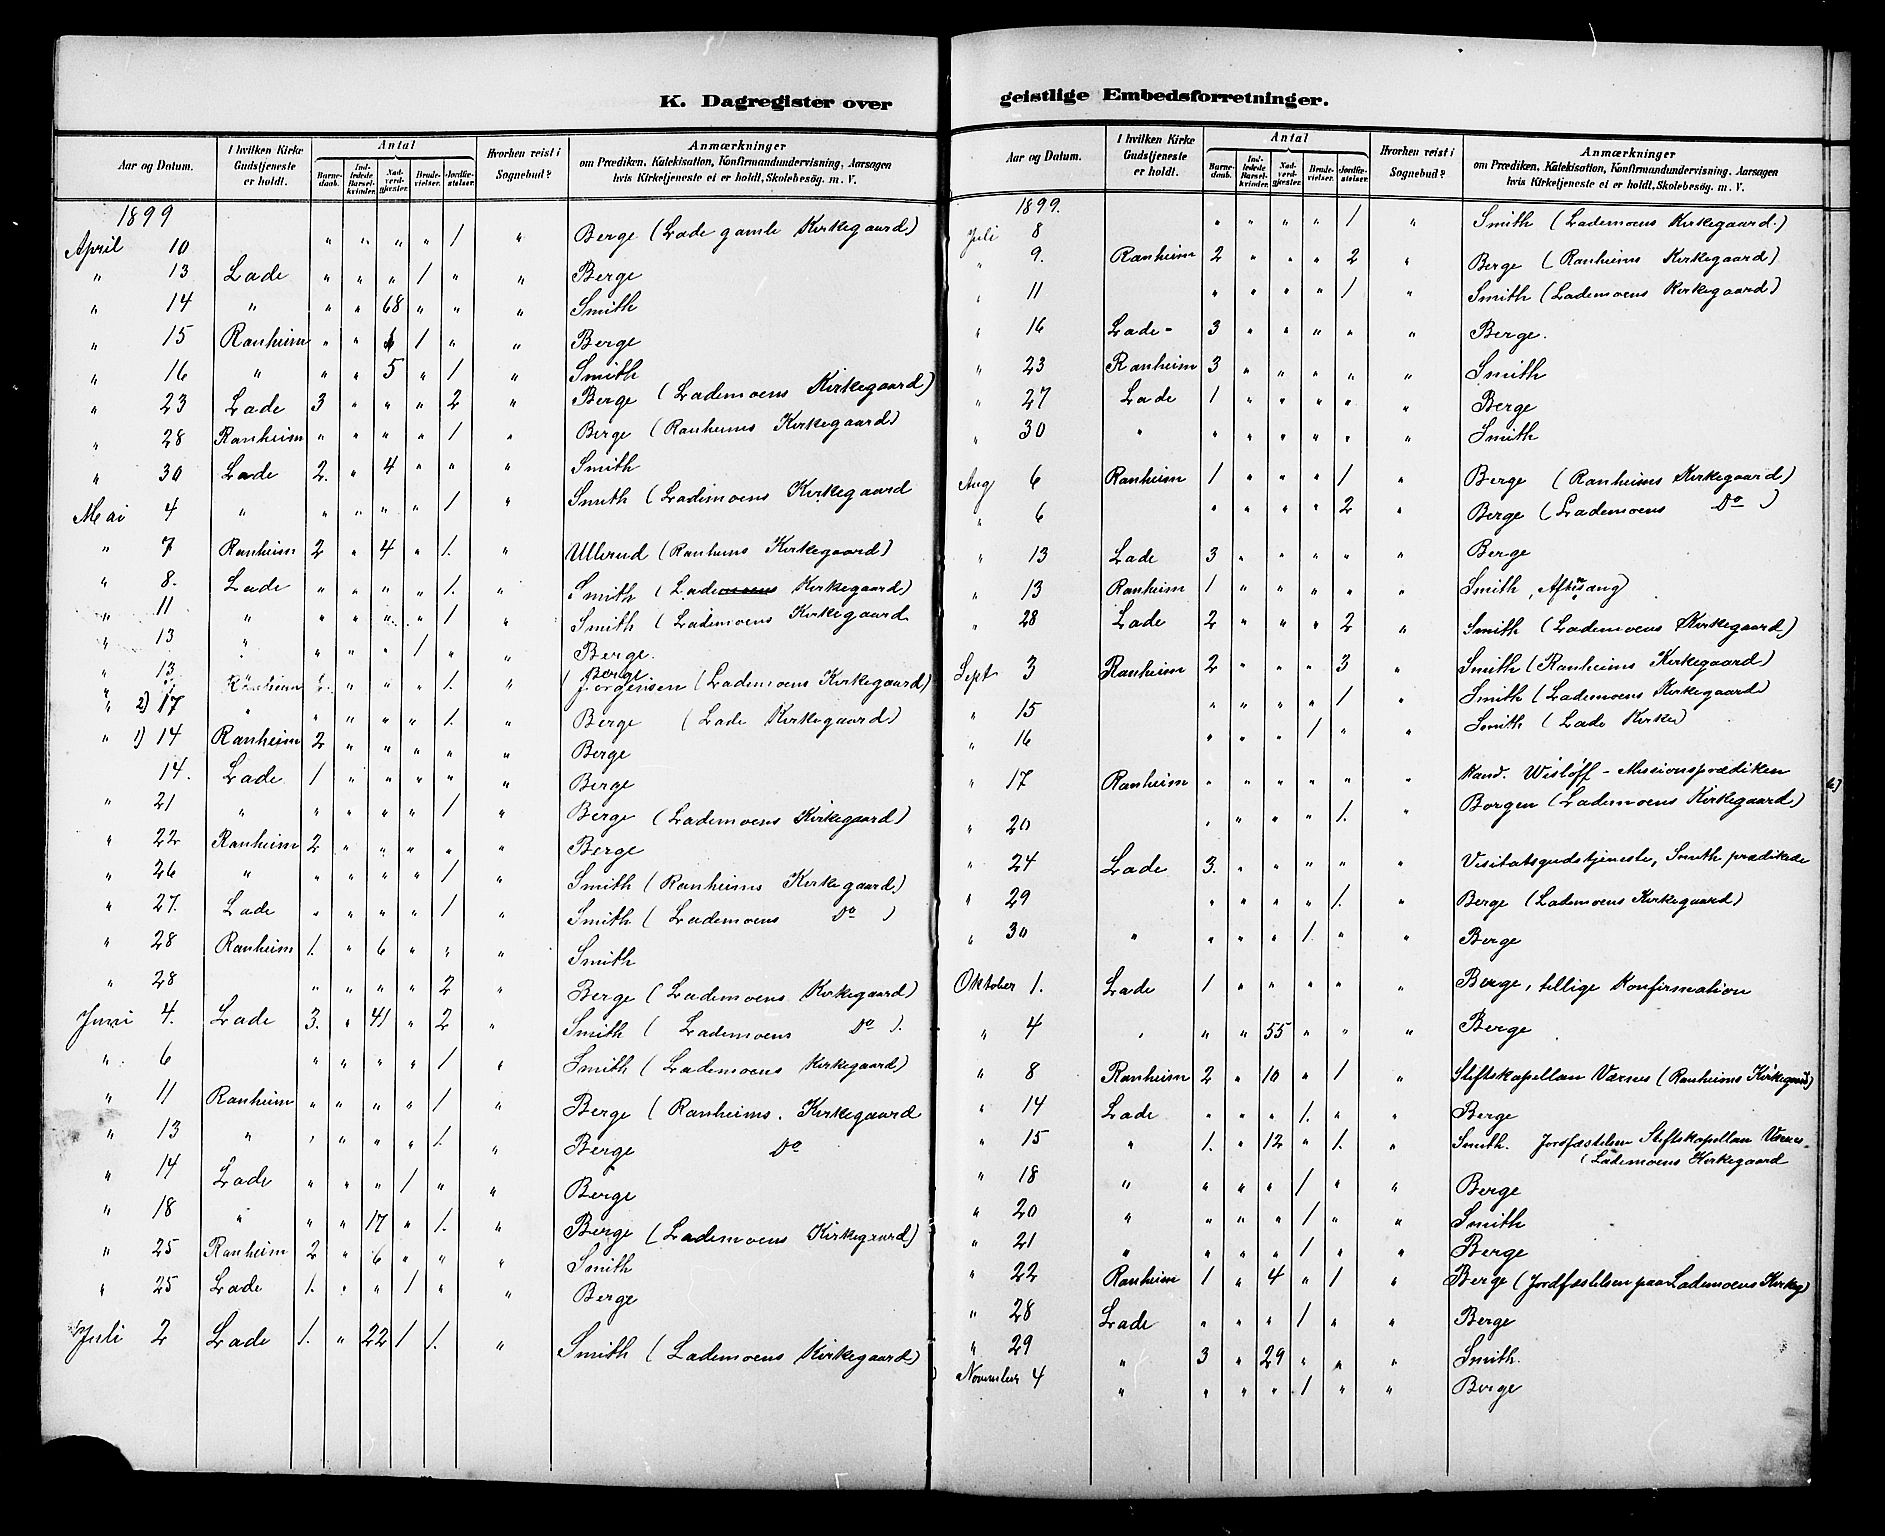 K. Dagregister over
Aar og Datum. I hvilken Kirke Gudstjeneste er holdt. Antal Barnedaab. Indledede Barselkvinder. Nadverdgjester. Brudevielser. Jordfæstelser. Hvorhen reist i Sognebud? Anmærkninger om Prædiken, Katekisation, Konfirmandundervisning, Aarsagen hvis Kirketjeneste ei er holdt, Skolebesøg. m. V.
1899
April 10 " " " " 1 " Berge (Lade gamle Kirkegaard)
" 13 Lade " " " 1 " " Berge
" 14 " " " 68 " " " Smith
" 15 Ranheim " " 1 " " Berge
" 16 " " " 5 " 1 " Smith
" 23 Lade 3 " " " 2 " Berge (Lademoens Kirkegaard)
" 28 Ranheim " " " " 1 " Berge (Ranheims Kirkegaard)
" 30 Lade 2. " 4 " " " Smith
Mai 4 " " " " " 1 " Smith (Lademoens Kirkegaard
" 7 Ranheim 2 " 4 " 1. " Ullerud (Ranheims Kirkegaard)
" 8. Lade " " " " 1. " Smith (Lademoens Kirkegaard)
" 11 " " " " " 1 " Smith (Lademoens Kirkegaard
" 13 " " " " 1 " " Berge.
" 13 Ranheim " " " 1. " Berge Jørgensen (Lademoens Kirkegaard)
" 2) 17 " " " " " 1. " Berge (Lade Kirkegaard)
" 1) 14 Ranheim 2 " " " " " Berge
14. Lade 1 " " " " " Berge
" 21 " " " " " 1 " Berge (Lademoens Kirkegaard)
" 22 Ranheim 2 " " " " " Berge
" 26 " " " " " 1 " Smith (Ranheims Kirkegaard)
" 27. Lade " " " " 1 " Smith (Lademoens Do )
" 28 Ranheim 1. " 6 " " " Smith
" 28 " " " " 2 " Berge (Lademoens Kirkegaard)
Juni 4. Lade 3. " 41 " 2 " Smith ( Lademoens Do ).
" 6 " " " " 1 " Smith (Lademoens Kirkegaard)
" 11 Ranheim " " " " 1 " Berge (Ranheims. Kirkegaard
" 13 " " " " " 1. " Berge Do
" 14 Lade " " " 1 " " Berge
" 18 " " " 17 " 1. " Berge (Lademoens Kirkegaard)
" 25 Ranheim 2 " 6 " " " Smith
" 25 Lade 1. " " 1 " " Berge
Juli 2 Lade 1. " 22 1 1. " Smith (Lademoens Kirkegaard)
geistlige Embedsforretninger.
Aar og Datum. I hvilken Kirke Gudstjeneste er holdt. Antal Barnedaab. Indledede Barselkvinder. Nadverdgjester. Brudevielser. Jordfæstelser. Hvorhen reist i Sognebud? Anmærkninger om Prædiken, Katekisation, Konfirmandundervisning, Aarsagen hvis Kirketjeneste ei er holdt, Skolebesøg. m. V.
1899.
Juli 8 " " " " 1 " Smith (Lademoens Kirkegaard.)
" 9. Ranheim 2 " " " 2 " Berge (Ranheims Kirkegaard)
" 11 " " " " 1 " Smith (Lademoens Kirkegaard)
" 16 Lade - 3 " " " " " Berge.
" 23 Ranheim 3 " " " " " Smith
" 27 Lade 1 " " " " " Berge
" 30 " " " " " " " Smith
Aug 6 Ranheim 1 " " " 1 " Berge (Ranheims Kirkegaard)
" 6 " " " " 2 " Berge (Lademoens Do )
" 13 Lade 3 " " " " " Berge
" 13 Ranheim 1 " " " " " Smith, Aftensang
" 28 Lade 2 " " " 2 " Smith (Lademoens Kirkegaard)
Sept 3 Ranheim 2 " " " 3 " Smith (Ranheims Kirkegaard)
" 15 " " " " 1 " Smith (Lademoens Kirkegaard)
" 16 " " " 1 " " Smith (Lade Kirke)
" 17 Ranheim " " " " " " Kand. Wisløff - Missionsprædiken
" 20 " " " " 1. " Borgen (Lademoens Kirkegaard)
" 24 Lade 3. " " " " " Visitatsgudstjeneste, Smith prædikede
" 29 " " " " 1. " Berge (Lademoens Kirkegaard)
" 30 " " " " 1. " " Berge
Oktober 1. Lade 1 " " " " " Berge, tillige Konfirmation
" 4 " " " 55 " " " Berge
" 8 Ranheim 2 " 10 " 1 " Stiftskapellan Værnes (Ranheims Kirkegaard)
" 14 Lade " " " 1. " " Berge
" 15 " 1. " 12 " 1. " Smith. Jordfæstelsen Stiftskapellan Værnes -
(Lademoens Kirkegaard
" 18 " " " " 1 " " Berge
" 20 " " " " 1 " " Smith
" 21 " " " " 1 " " Berge
" 22 Ranheim 1 " 4 " 1 " Berge (Jordfæstelsen paa Lademoens Kirkeg)
" 28 Lade " " " 1 " " Berge
" 29 " 3 " 29 " " " Smith.
November 4 " " " " 1 " " Berge